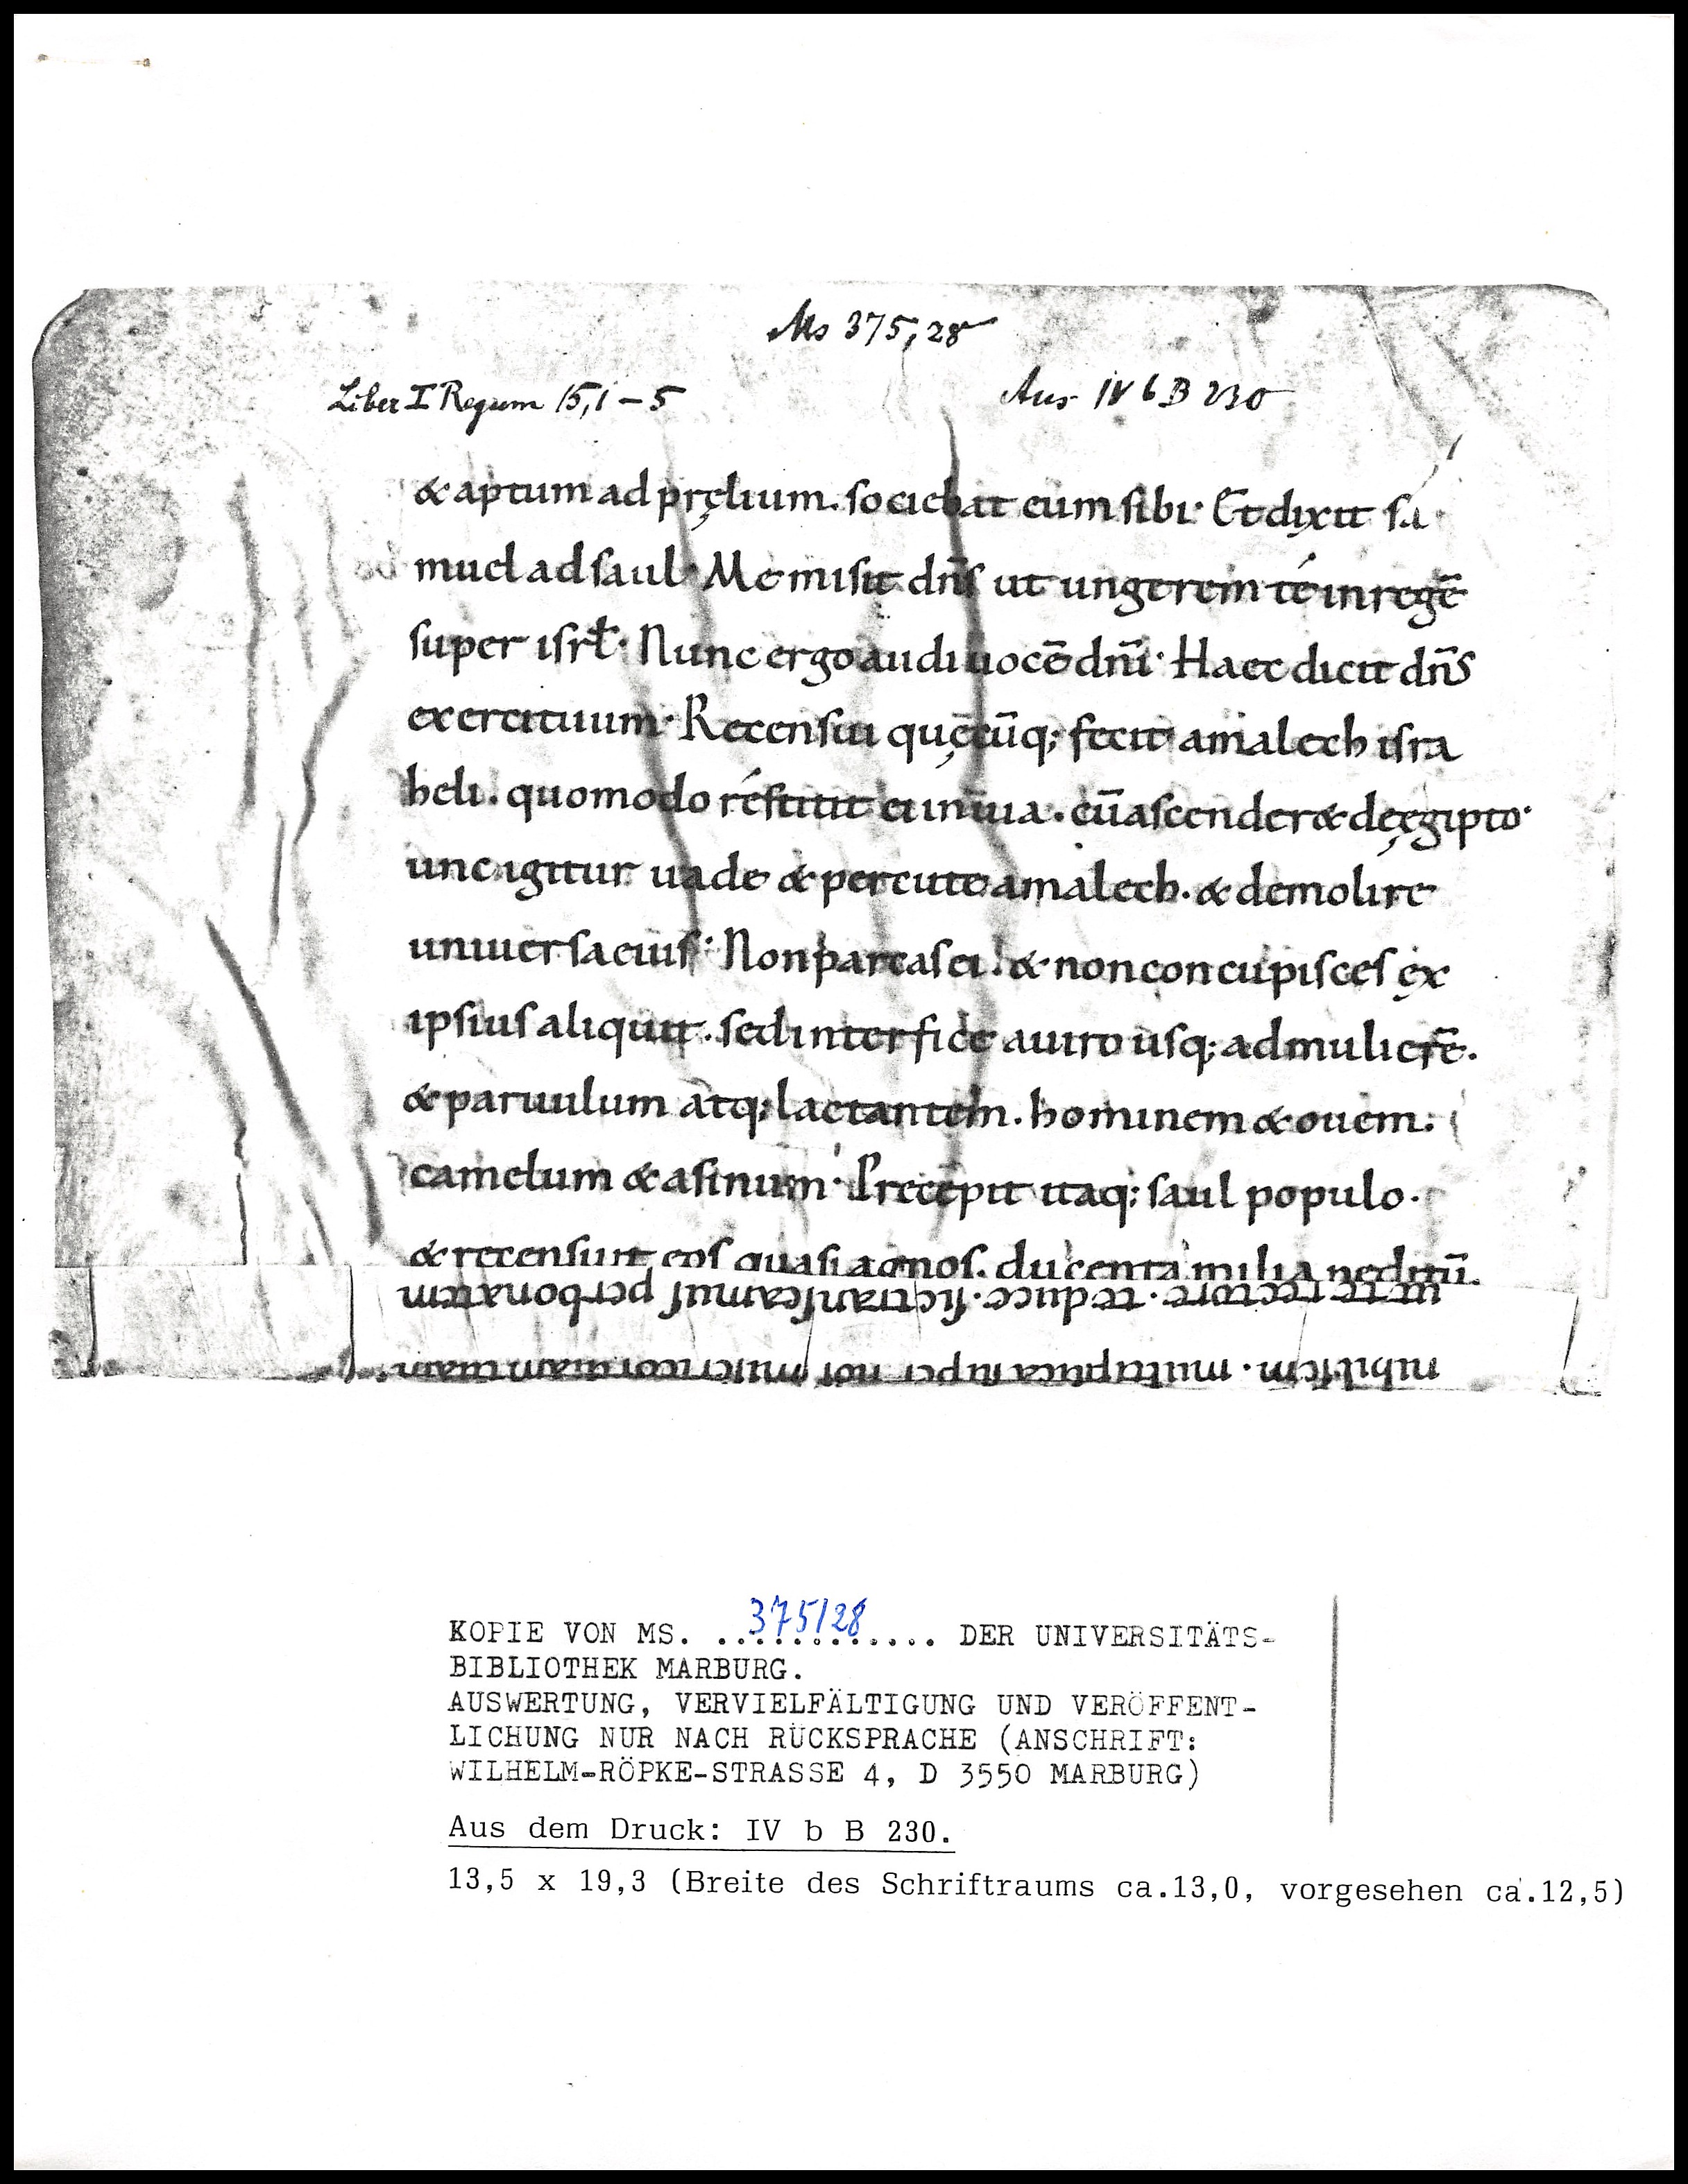 Ms 375,28
Liber I Regum 15,1–5
Aus IV b B 230
& aptum ad pręlium. sociebat eum sibi· Et dixit sa
muel ad saul· Me misit dn̄s ut ungerem té in regē
super isrł· Nunc ergo audi uocē dn̄i· Haec dicit dn̄s
exercituum· Recensui quęcūq; fecit amalech isra
heli. quomodo réstitit ei in uia. cū ascender& de ęgipto·
unc igitur uade & percute amalech. & demolire
uniuersa eius· Non parcas ei! & non concupisces ex
ipsius aliquit. sed interfice a uiro usq; ad mulierē.
& paruulum atq; lactantem. hominem & ouem.
camelum & asinum· Precepit itaq; saul populo.
& recensuit eos quasi agnos. ducenta milia peditū.
te rectore. te duce. sic transeamus per bona tem
nihil sem. multiplica super nos misericordiam tuam.
KOPIE VON MS. 375/28 DER UNIVERSITÄTS-
BIBLIOTHEK MARBURG.
AUSWERTUNG, VERVIELFÄLTIGUNG UND VERÖFFENT-
LICHUNG NUR NACH RÜCKSPRACHE (ANSCHRIFT:
WILHELM-RÖPKE-STRASSE 4, D 3550 MARBURG)
Aus dem Druck: IV b B 230.
13,5 x 19,3 (Breite des Schriftraums ca.13,0, vorgesehen ca.12,5)